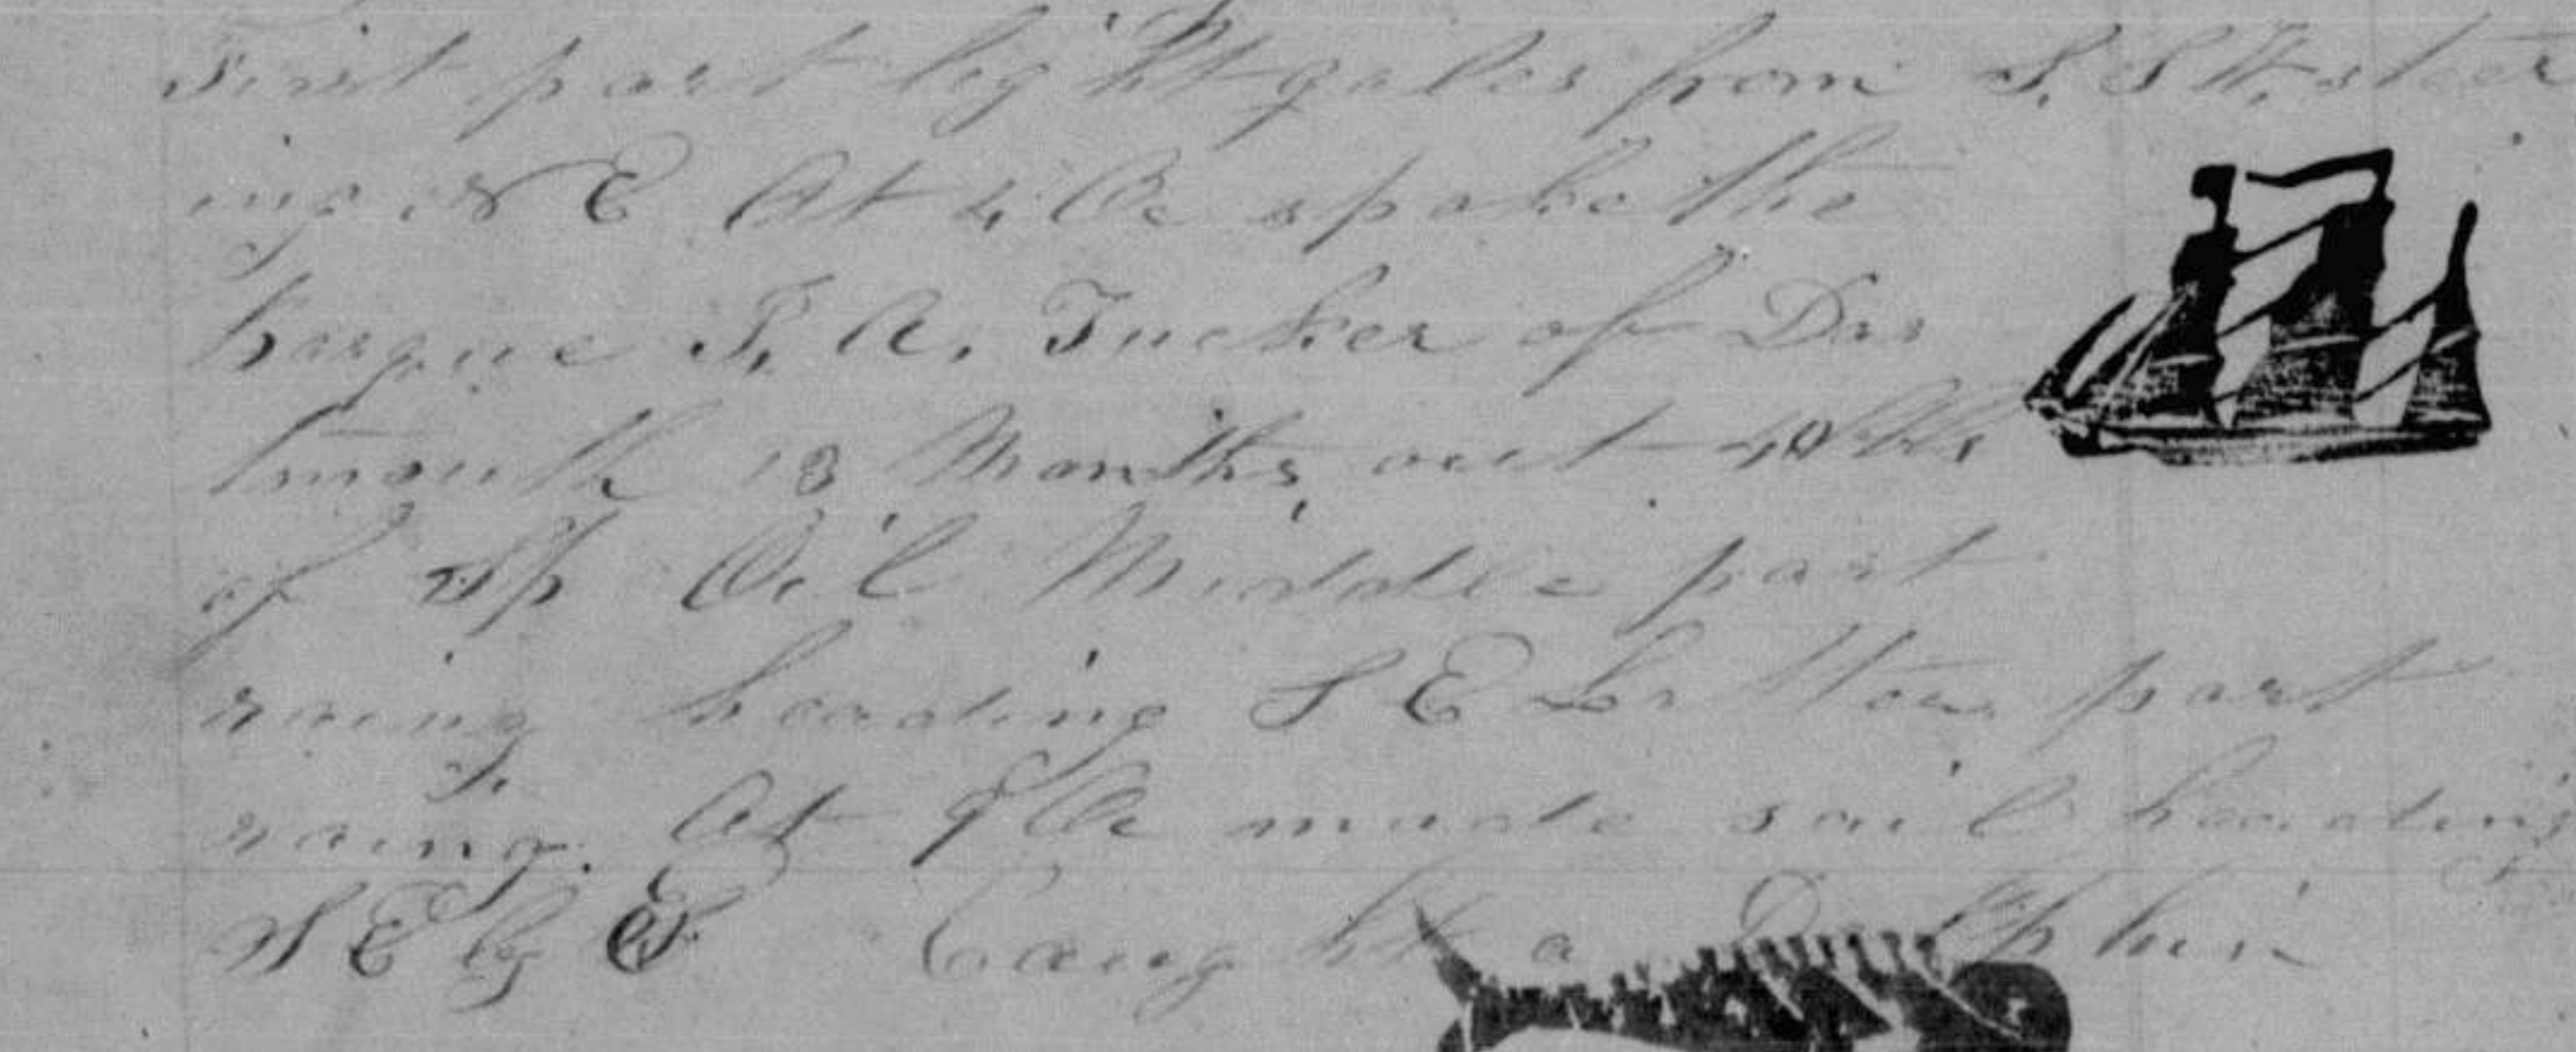 First part light gales from S. S W. steer
ing N E At 4 Oc spoke the
barque P. A. Tucker of Dar
tmouth 13 Months out 40 bbls
of Sp Oil Middle part
raing heading S E Latter part
raing. At 9 Oc made sail heading
S E by E Caught a Dolphin